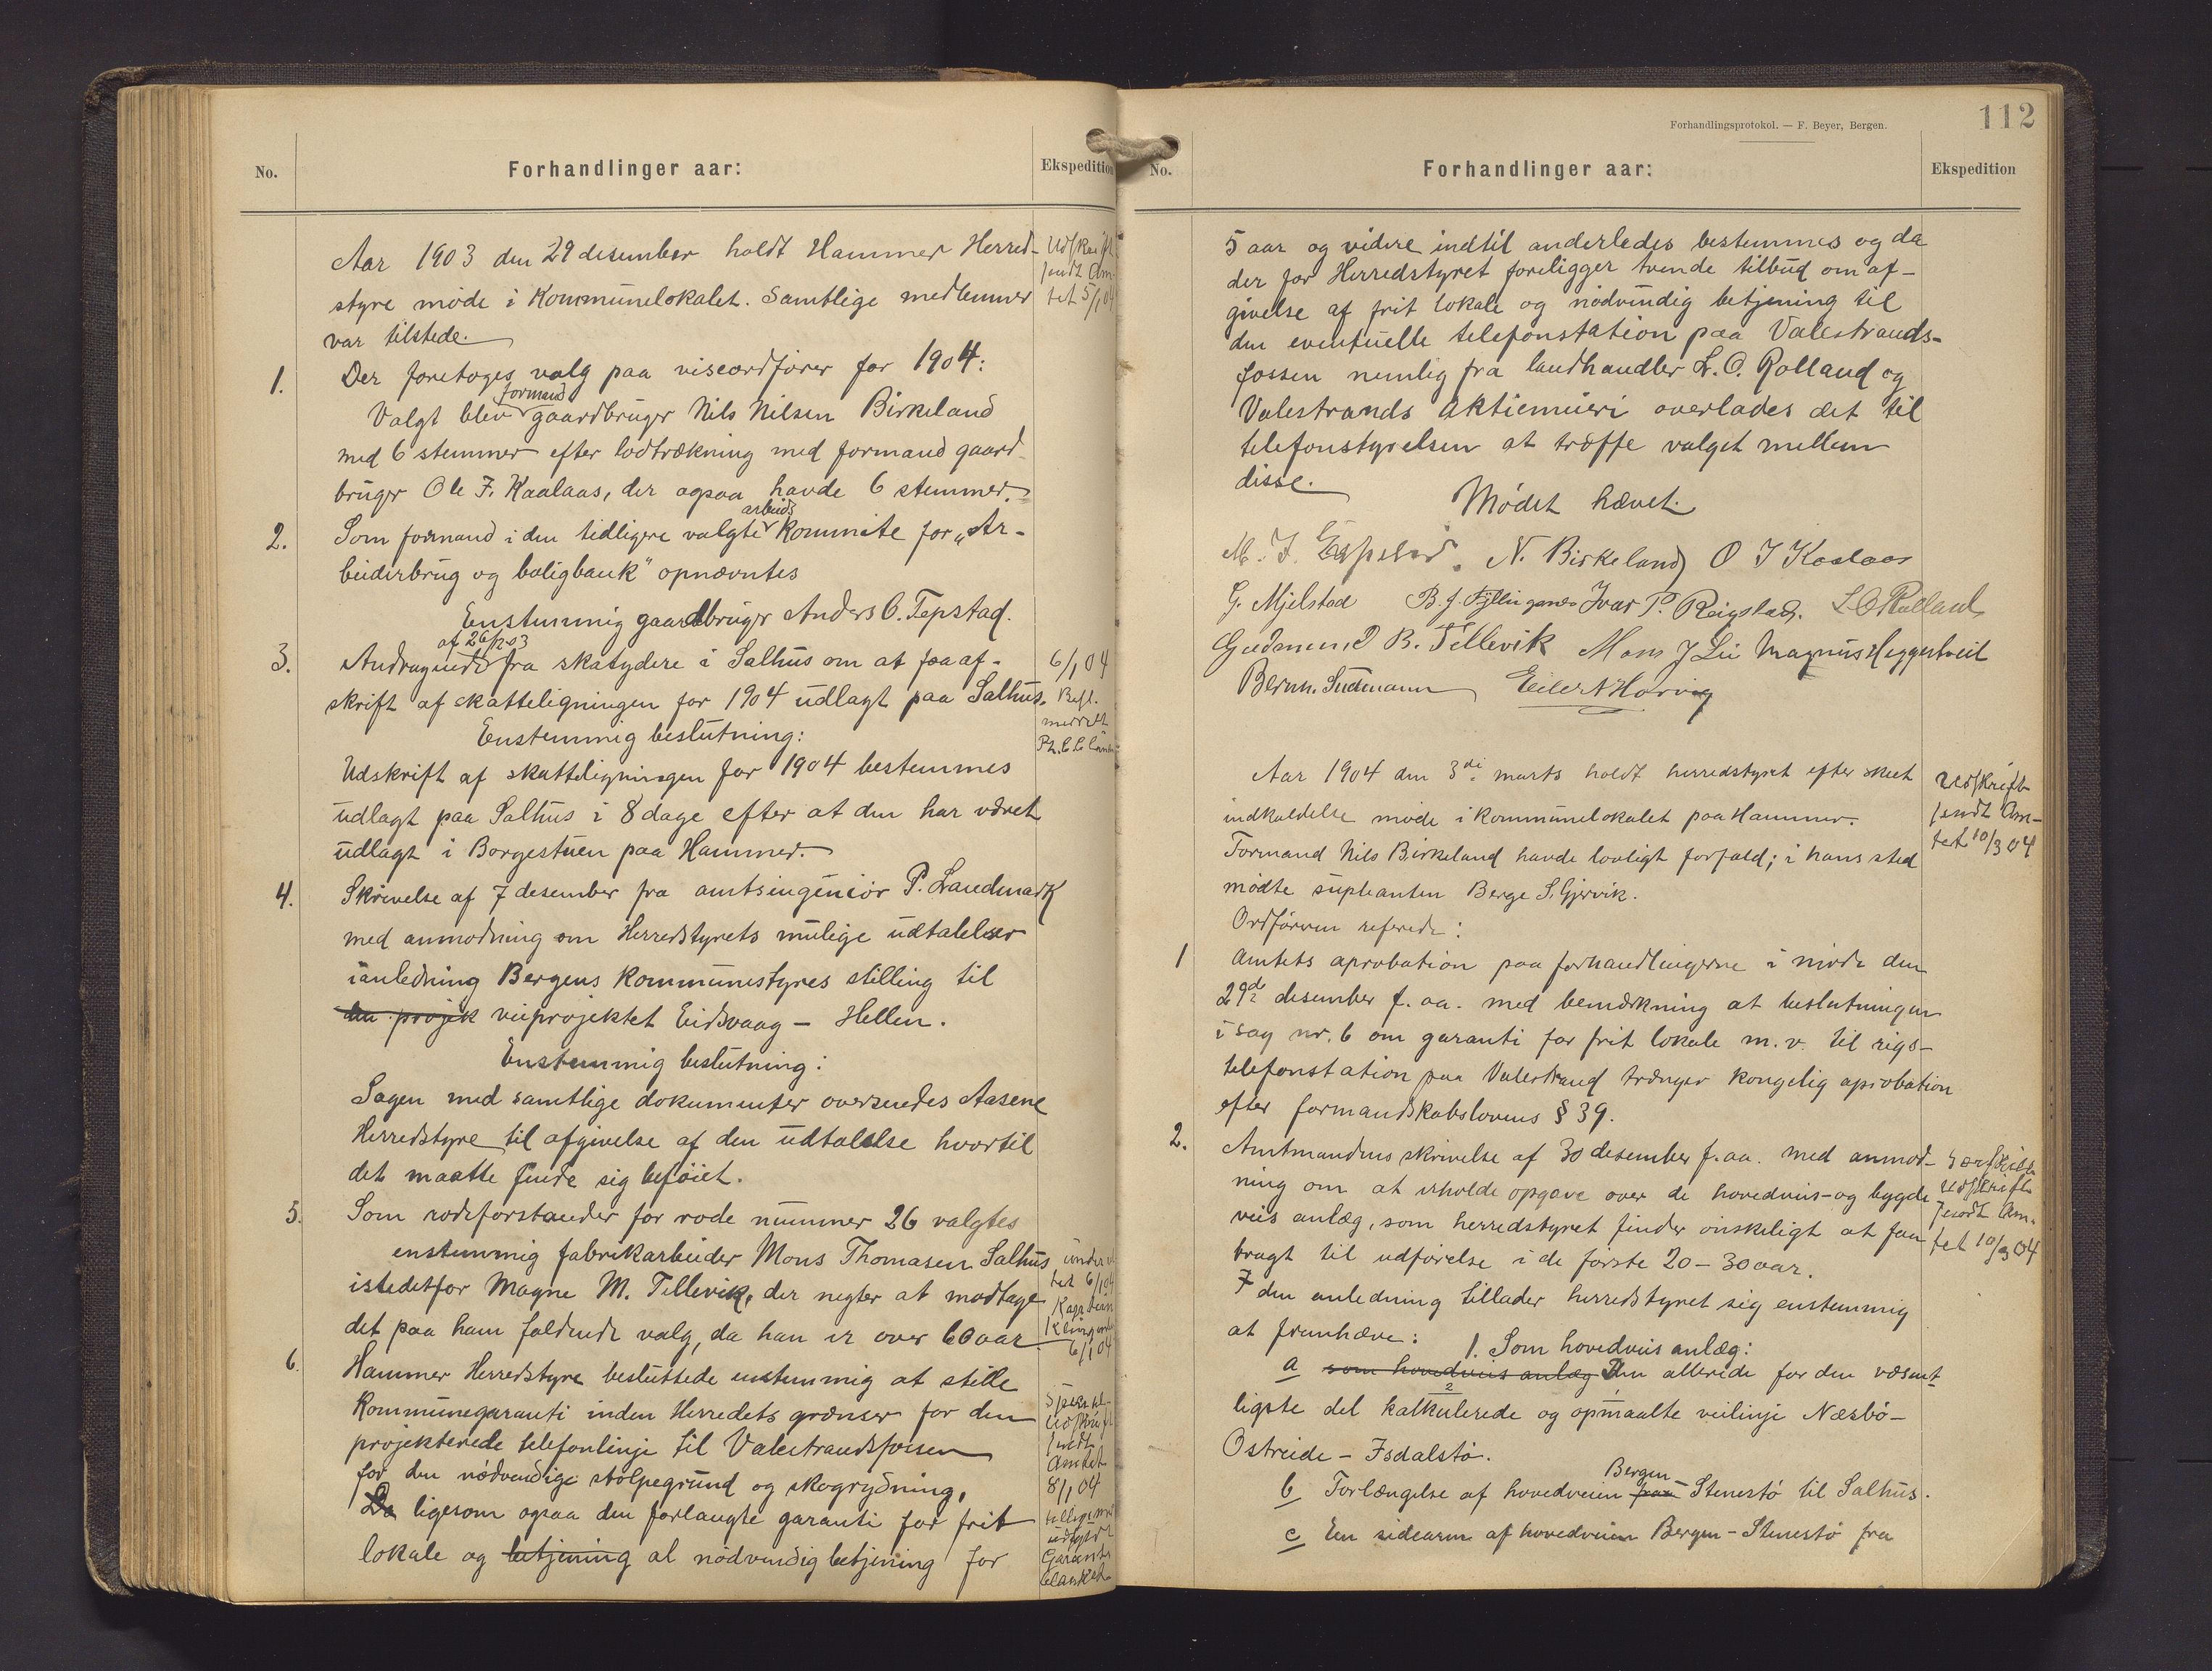 No.
Forhandlinger aar:
Ekspedition
Aar 1903 den 29 desember holdt Hammer Herred-
styre møde i Kommunelokalet. Samtlige medlemmer
var tilstede.
Udskrift
sendt Am-
tet 5/1 04
1. Der foretoges valg paa viseordfører for 1904:
formand
Valgt blev gaardbruger Nils Nilsen Birkeland
med 6 stemmer efter lodtrækning med formand gaard-
bruger Ole J. Kaalaas, der ogsaa havde 6 stemmer.
arbeids
2. Som formand i den tidligere valgte Kommite for „Ar-
beiderbrug og boligbank" opnævntes
Enstemmig gaardbruger Anders O. Tepstad.
af 26/12 03
3. Andragende fra skatydere i Salhus om at faa af-
skrift af skatteligningen for 1904 udlagt paa Salhus.
Enstemmig beslutning:
Udskrift af skatteligningen for 1904 bestemmes
udlagt paa Salhus i 8 dage efter at den har været
udlagt i Borgestuen paa Hammer.
6/1 04
4. Skrivelse af 7 desember fra amtsingeniør P. Landmark
med anmodning om Herredstyrets mulige udtalelser
ianledning Bergens Kommunestyres stilling til
den projek veiprojektet Eidsvaag – Hellen.
Enstemmig beslutning:
Sagen med samtlige dokumenter oversendes Aasene
Herredstyre til afgivelse af den udtalelse hvortil
det maatte finde sig beføiet.
5. Som rodeforstander for rode nummer 26 valgtes
enstemmig fabrikarbeider Mons Thomasen Salhus
istedetfor Magne M. Tellevik, der negter at modtage
det paa ham faldende valg, da han er over 60 aar.
6/1 04
6/1 04
6. Hammer Herredstyre besluttede enstemmig at stille
Kommunegaranti inden Herredets grænser for den
projekterede telefonlinje til Valestrandsfossen
for den nødvendige stolpegrund og skogrydning,
Da ligesom ogsaa den forlangte garanti for frit
lokale og betjening al nødvendig betjening for
Udskrift
sendt
Amtet
8/1 04
Garanti
blanket
Forhandlingsprotokol. — F. Beyer, Bergen.
112
No.
Forhandlinger aar:
Ekspedition
5 aar og videre indtil anderledes bestemmes og da
der for Herredstyret foreligger tvende tilbud om af-
givelse af frit lokale og nødvendig betjening til
den eventuelle telefonstation paa Valestrands-
fossen nemlig fra landhandler L. O. Rolland og
Valestrands Aktiemeieri overlades det til
telefonstyrelsen at træffe valget mellem
disse.
Mødet hævet.
N. Birkeland O J Kaalaas
G. Mjelstad Ivar P. Reigstad. L O Rolland
Gudmund B. Tellevik Mons J Lie Magnus Heggertveit
Bernh. Sudmann Eilert Horvig
Aar 1904 den 3di marts holdt herredstyret efter skeet
indkaldelse møde i kommunelokalet paa Hammer.
Formand Nils Birkeland havde lovligt forfald; i hans sted
mødte supleanten Berge S. Gjervik.
Ordføreren referede:
Udskrift
sendt Am-
tet 10/3 04
1 Amtets aprobation paa forhandlingerne i møde den
29de desember f. aa. med bemærkning at beslutningen
i sag nr. 6 om garanti for frit lokale m. v. til rigs-
telefonstation paa Valestrand trænger kongelig aprobation
efter formandskabslovens § 39.
2. Amtmandens skrivelse af 30 desember f. aa. med anmod-
ning om at erholde opgave over de hovedveis- og bygde
veis anlæg, som herredstyret finder ønskeligt at faa
bragt til udførelse i de første 20 – 30 aar.
I den anledning tillader herredstyret sig enstemmig
at fremhæve:
Særskilt
udskrift
sendt Am-
tet 10/3 04
1. Som hovedveis anlæg:
a som hovedveis anlæg Den allerede for den væsent-
ligste del kalkulerede og opmaalte veilinje Næsbø-
Ostreide – Isdalstø.
Bergen
b Forlængelse af hovedveien paa – Stenestø til Salhus.
c En sidearm af hovedveien Bergen – Stenestø fra